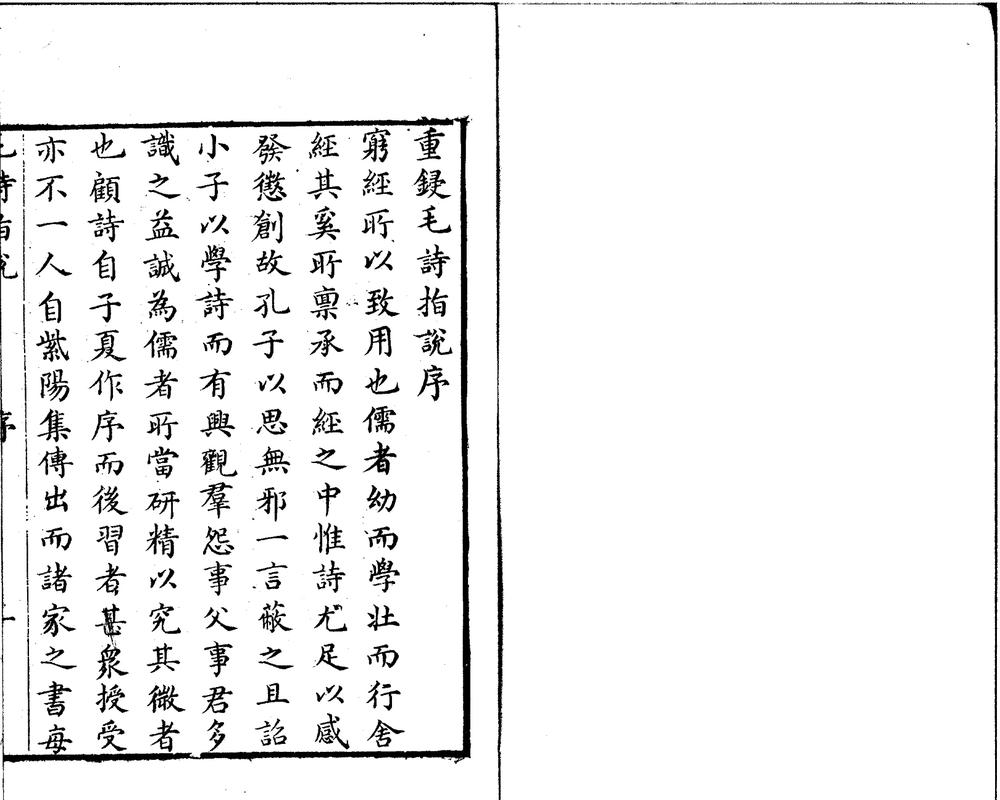 重鋟毛詩指說序
窮經所以致用也儒者幼而學壯而行舍
經其奚所禀承而經之中惟詩尤足以感
發懲創故孔子以思無邪一言蔽之且詔
小子以學詩而有興觀羣怨事父事君多
識之益誠為儒者所當研精以究其微者
也顧詩自子夏作序而後習者甚衆授受
亦不一人自紫陽集傳出而諸家之書每
毛詩指說 序 一